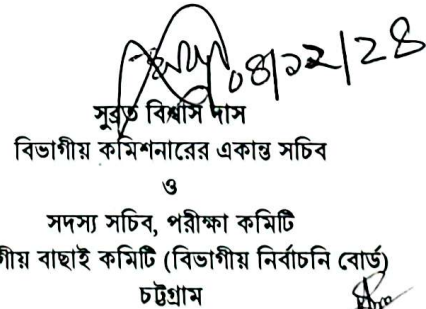 ০৪/১২/২৪
সুব্রত বিশ্বাস দাস
বিভাগীয় কমিশনারের একান্ত সচিব
ও
সদস্য সচিব, পরীক্ষা কমিটি
গীয় বাছাই কমিটি (বিভাগীয় নির্বাচনি বোর্ড)
চট্টগ্রাম